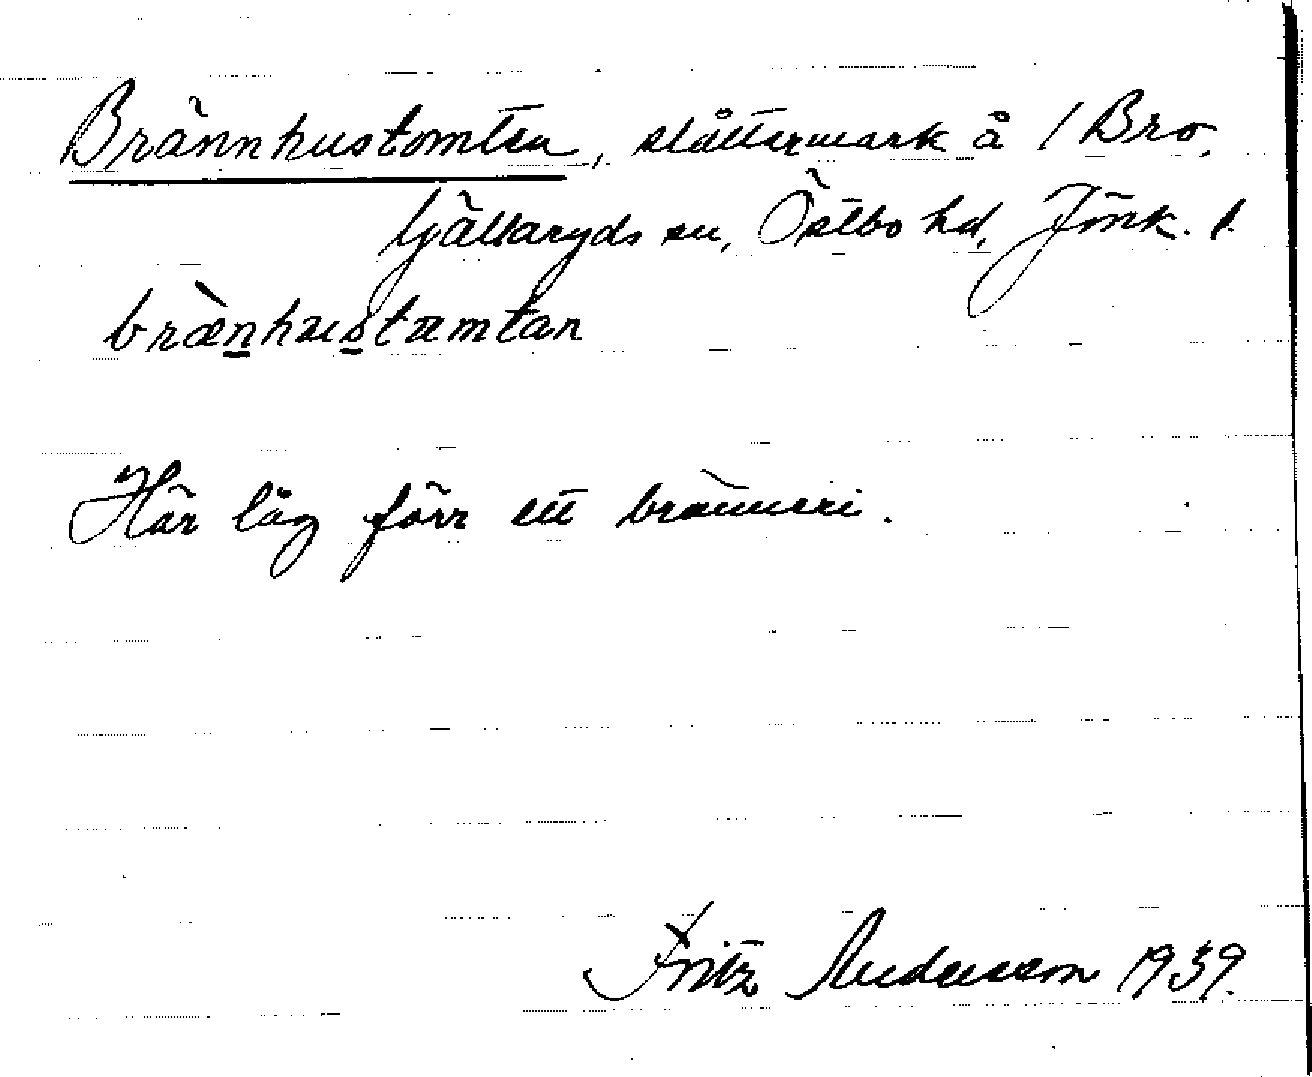 Brännhustomten, slåttermark å 1 Bro,
Gällaryds sn, Östbo hd, Jönk. l.
brænhustomtan
Här låg förr ett bränneri.
Fritz Andersson 1939.